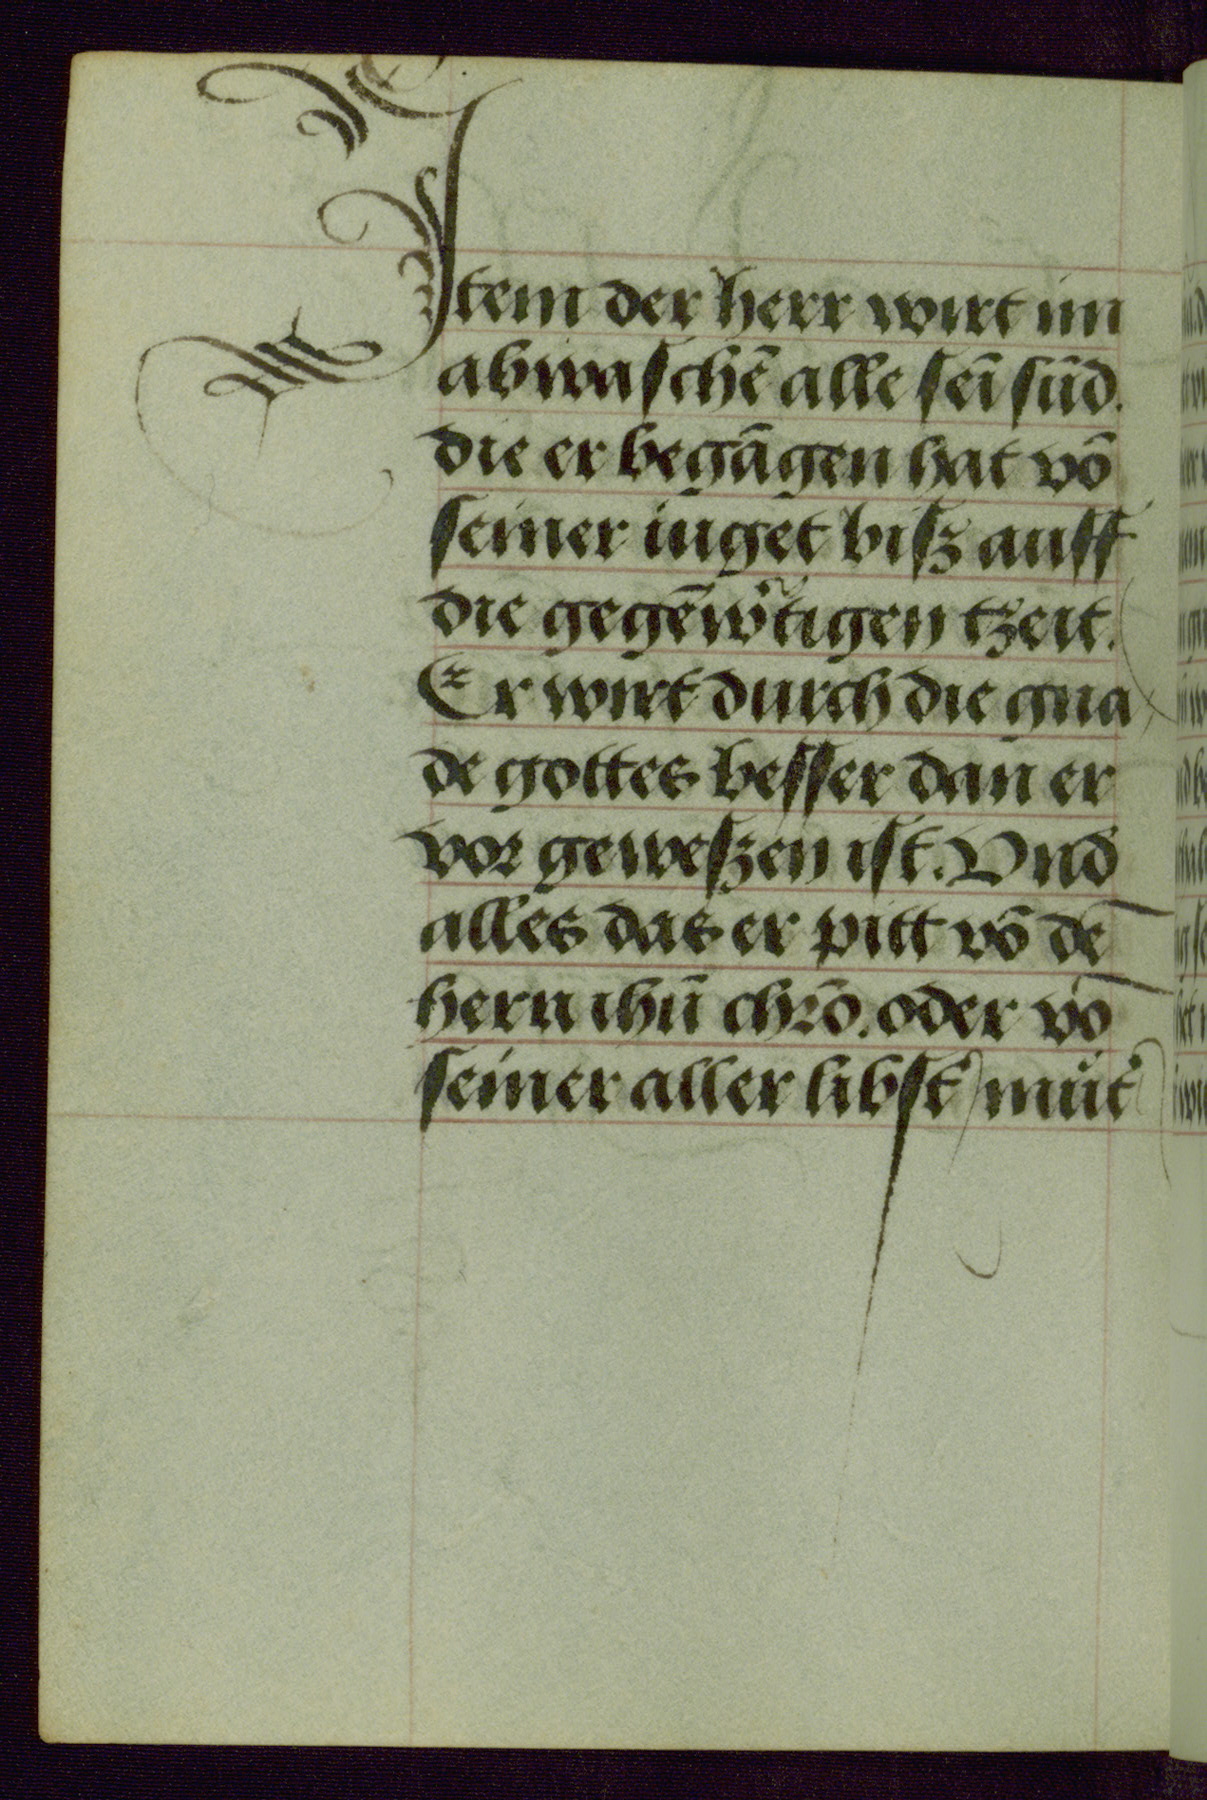 Item der herr wirt im
abwaschē alle seī sūd.
die er begāgen hat vō
seiner iuḡet bisz auff
die gegēw̾tigen tzeit.
Er wirt durch die gna
de gottes besser dan er
vor geweszen ist. Vnd
alles das er pitt vō dē
hern ihū chrō. oder vō
seiner aller libst̾ muͦt̾